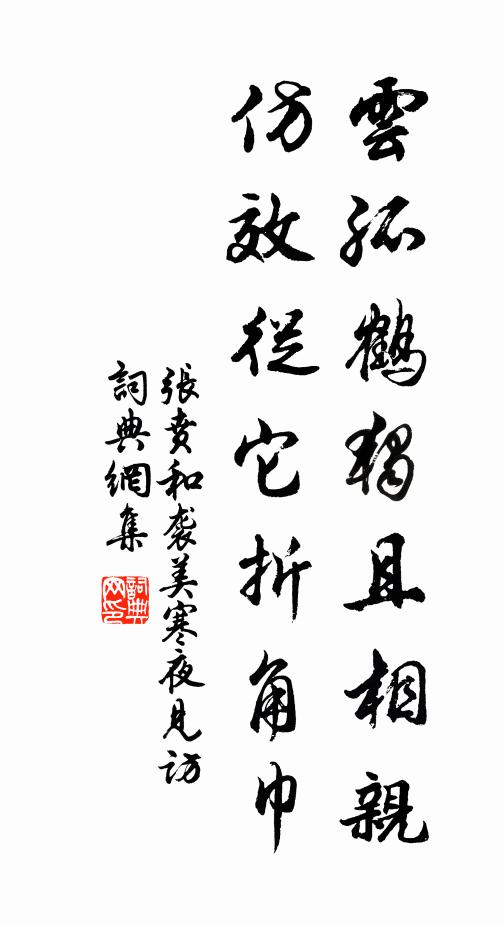 雲孤鶴獨且相親
仿效從它折角巾
張賁和袭美寒夜見訪
詞典網集
詞典
網印